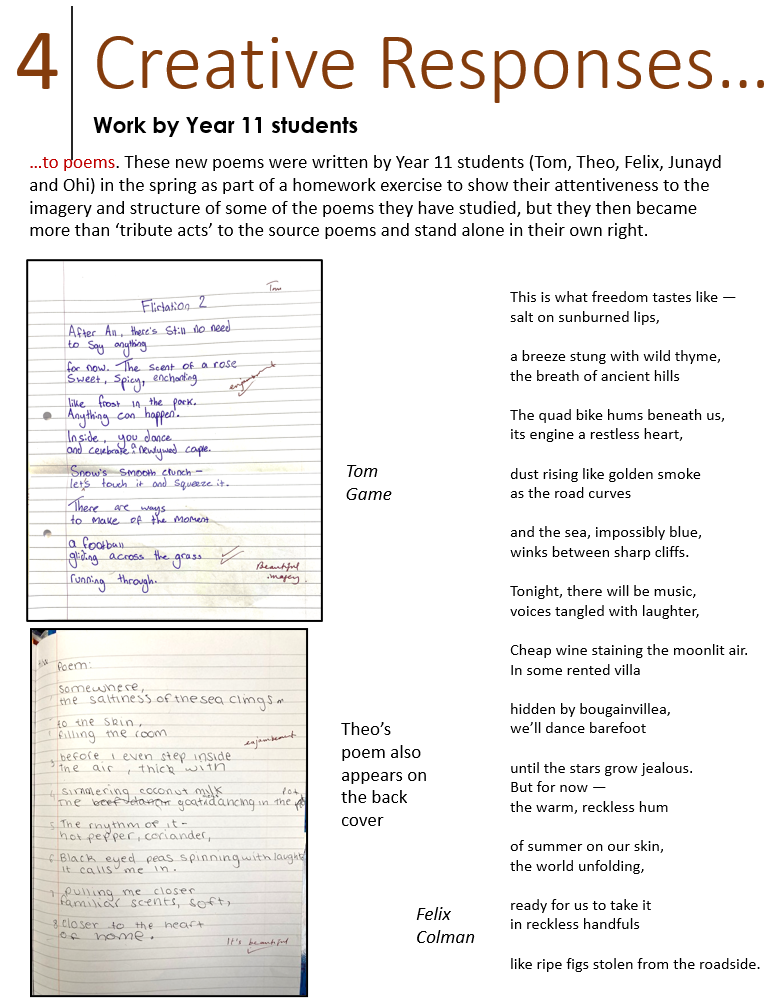 4 Creative Responses...
Work by Year 11 students
...to poems. These new poems were written by Year 11 students (Tom, Theo, Felix, Junayd
and Ohi) in the spring as part of a homework exercise to show their attentiveness to the
imagery and structure of some of the poems they have studied, but they then became
more than ‘tribute acts’ to the source poems and stand alone in their own right.
Tom
Flirtation 2
After All, there's still no need
to say anything
for now. The scent of a rose
Sweet, Spicy, enchanting
enjambment
like frost in the park.
Anything can happen.
Inside, you dance
and celebrate a newlywed couple.
Snow's smooth crunch –
let's touch it and squeeze it.
There are ways
to make of the moment
a football
gliding across the grass
running through.
Beautiful
imagery
Tom
Game
Poem:
Somewhere,
the saltiness of the sea clings
to the skin,
filling the room
enjambment
3 before I even step inside
The air, thick with
4 simmering coconut milk
The goat dancing in the pot,
5 The rhythm of it –
hot pepper, coriander,
6 Black eyed peas spinning with laughter
it calls me in.
7 pulling me closer
familiar scents, soft,
8 closer to the heart
of home.
It's beautiful
Theo’s
poem also
appears on
the back
cover
This is what freedom tastes like —
salt on sunburned lips,
a breeze stung with wild thyme,
the breath of ancient hills
The quad bike hums beneath us,
its engine a restless heart,
dust rising like golden smoke
as the road curves
and the sea, impossibly blue,
winks between sharp cliffs.
Tonight, there will be music,
voices tangled with laughter,
Cheap wine staining the moonlit air.
In some rented villa
hidden by bougainvillea,
we’ll dance barefoot
until the stars grow jealous.
But for now —
the warm, reckless hum
of summer on our skin,
the world unfolding,
ready for us to take it
in reckless handfuls
like ripe figs stolen from the roadside.
Felix
Colman